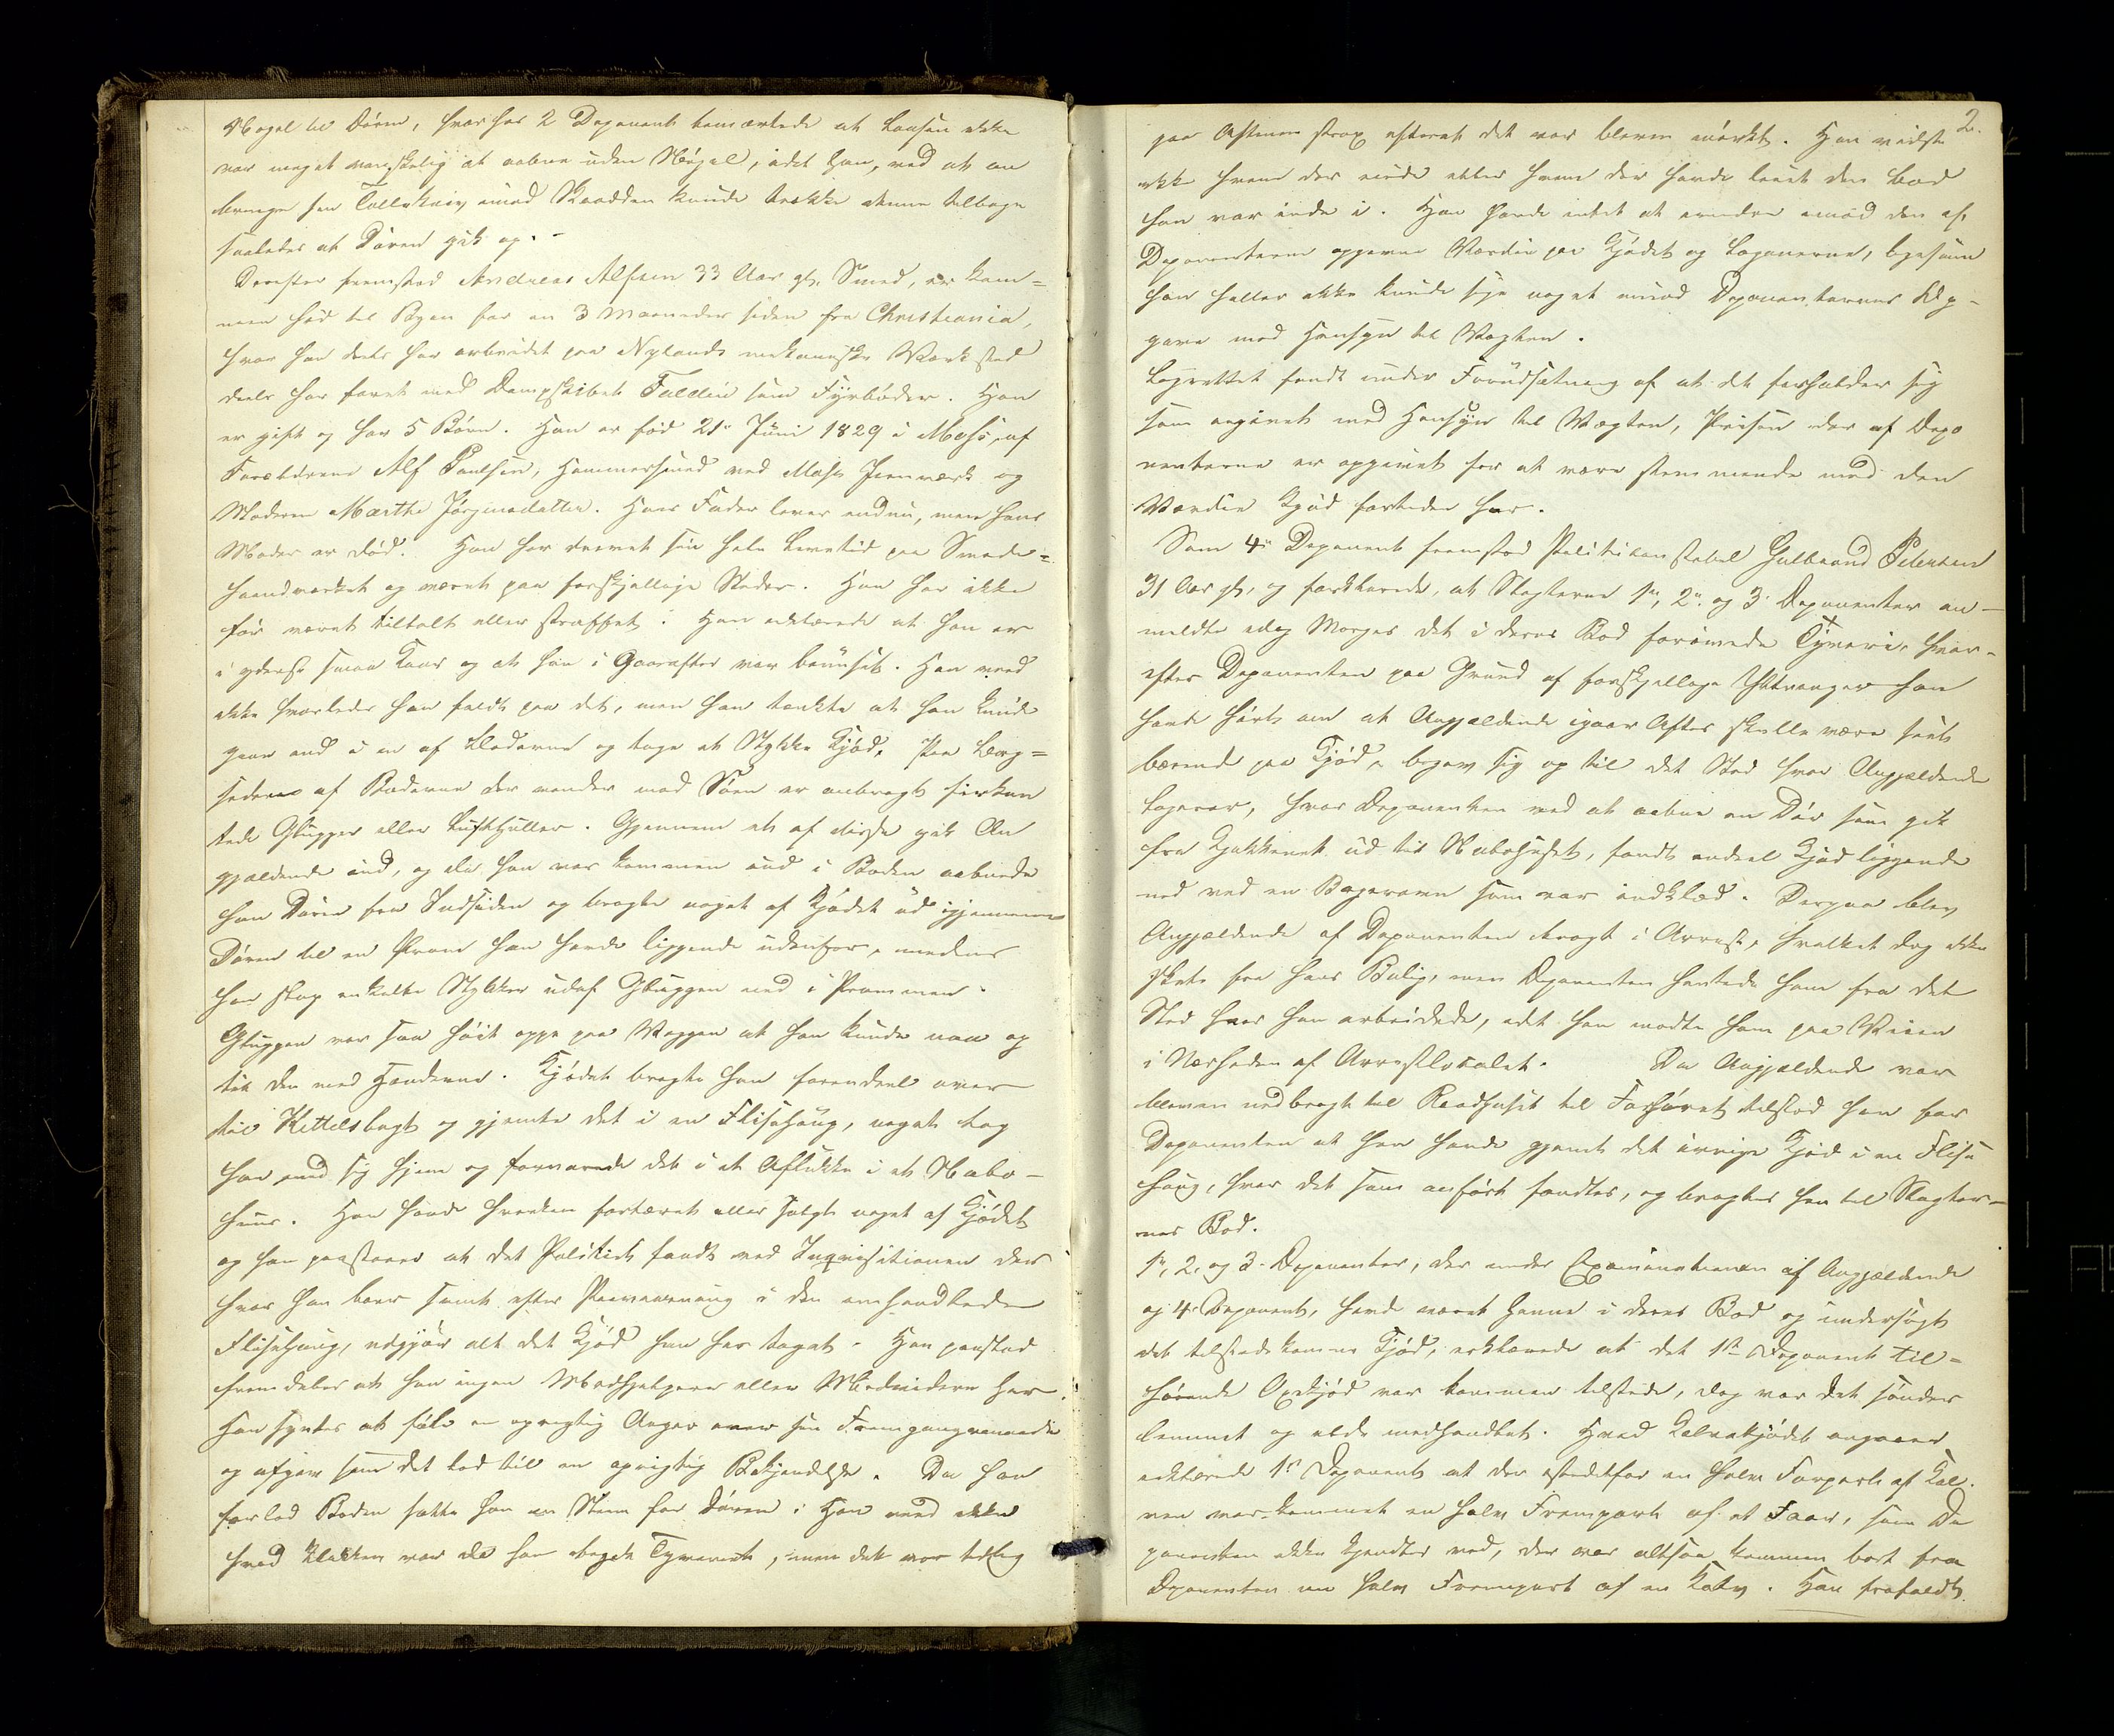 Nøgel til Døren, hvorhos 2 Deponent bemærkede at Laasen ikke
var meget vanskelig at aabne uden Nøgel, idet han, ved at an
bringe sin Tollekniv imod Raadden kunde trække denne tilbage
saaledes at Døren gik op.-
Derefter fremstod Andreas Alfsen 33 Aar gl. Smed, er kom=
men hid til Byen for en 3 Maaneder siden fra Christiania,
hvor han deels har arbeidet paa Nylands mekaniske Værksted
deels har faret med Dampskibet Faldin som Fyrbøder. Han
er gift og har 5 Børn. Han er fød 21de Juni 1829 i Moss, af
Forældrene Alf Paulsen, Hammersmed ved Moss Jernværk og
Moderen Marthe Jørginedatter. Hans Fader lever endnu, men hans
Moder er død. Han har drevet sin hele Levetid paa Smede=
haandværket og været paa forskjellige Steder. Han har ikke
før været tiltalt eller straffet. Han erklærede at han er
i yderst smaa Kaar og at han i Gaaraftes var beruset. Han veed
ikke hvorledes han faldt paa det, men han tænkte at han kunde
gaae ind i en af Boderne og tage et Stykke Kjød. Paa Lang=
siderne af Boderne der vender mod Søen er anbragt firkan
tede Glugger eller Lufthuller. Gjennem et af disse gik An
gjældende ind, og da han var kommen ind i Boden aabnede
han Døren fra Indsiden og bragte noget af Kjødet ud igjennem
Døren til en Pram han havde liggende udenfor, medens
han stak enkelte Stykker udaf Gluggen ned i Prammen.
Gluggen var saa høit oppe paa Væggen at han kunde naa op
til den med Hænderne. Kjødet bragte han forendeel over
til Kittelsbugt og gjemte det i en Flisehaug, noget tog
han med sig hjem og forvarede det i et Aflukke i et Nabo-
huus. Han havde hverken fortæret eller solgt noget af Kjødet
og han paastaar at det Politiet fandt ved Inqvisitionen der
hvor han boer samt efter Paaviisning i den omhandlede
Flisehaug, udgjør alt det Kjød han har taget. Han paastod
fremdeles at han ingen Medhjelpere eller Medvidere har.
Han syntes at føle en oprigtig Anger over sin Fremgangsmaade
og afgav som det lod til en oprigtig Bekjendelse. Da han
forlod Boden satte han en Steen for Døren. Han veed ikke
hvad Klokken var da han begik Tyveriet, men det var tidlig
2.
paa Aftenen strax efterat det var bleven mørkt. Han vidste
ikke hvem der eiede eller hvem der havde leiet den Bod
han var inde i. Han havde intet at erindre imod den af
Deponenterne opgivne Værdie paa Kjødet og Løgene, ligesom
han heller ikke kunde sige noget imod Deponenternes Op-
gave med Hensyn til Vægten.
Lagrettet fandt under Forudsætning af at det forholder sig
som angivet med Hensyn til Vægten, Prisen der af Depo
nenterne er opgivet for at være stemmende med den
Værdie Kjød fortiden har.
Som 4de Deponent fremstod Politikonstabel Gulbrand Petersen
31 Aar gl. og forklarede, at Slagterne 1ste, 2den og 3die Deponenter an-
meldte idag Morges det i deres Bod forøvede Tyveri, hvor-
efter Deponenten paa Grund af forskjellige Yttringer han
havde hørt om at Angjældende igaar Aftes skulle være seet
bærende paa Kjød, begav sig op til det Sted hvor Angjældende
logerer, hvor Deponenten ved at aabne en Dør som gik
fra Kjøkkenet ud til Nabohuset, fandt endeel Kjød liggende
ned ved en Bagerovn som var indklæd. Derpaa blev
Angjældende af Deponenten bragt i Arrest, hvilket dog ikke
skete fra hans Bolig, men Deponenten hentede ham fra det
Sted hvor han arbeidede, idet han mødte ham paa Veien
i Nærheden af Arrestlokalet. Da Angjældende var
bleven nedbragt til Raadhuset til Forhøret tilstod han for
Deponenten at han havde gjemt det øvrige Kjød i en Flise
haug, hvor det som anført fandtes, og bragtes hen til Slagter-
nes Bod.
1ste, 2den og 3die Deponenter, der under Examinationen af Angjældende
og 4de Deponent, havde været henne i deres Bod og undersøgt
det tilstedekomne Kjød, erklærede at det 1ste Deponent til=
hørende Oxekjød var kommen tilstede, dog var det sønder
lemmet og ilde medhandlet. Hvad Kalvekjødet angaaer
erklærede 1ste Deponent at der istedetfor en halv Forpart af Kal-
ven var kommet en halv Frempart af et Faar, som De
ponenten ikke kjendtes ved, der var altsaa kommen bort fra
Deponenten en halv Frempart af en Kalv. Han frafaldt